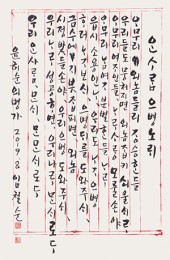 안사람 으병노리
아무리 왜놈들리 강승한들
우리들도 뭉쳐지면 왜놈잡기 쉬울세라
아무리 여자인들 나라사랑 모를손야
아무리 남여가 유별한들 나라
읍시 소용있나 우리도 나가 으병
하러 나가보세 으병대를 도와주세
금수에게 붓잡피면 왜놈
시정 밧들손야 우리 으병 도와주세
우리나라 성공하면 우리나라 만세로다
우리 안사람 만만세로다
윤희순의병가 2019.8 임철순